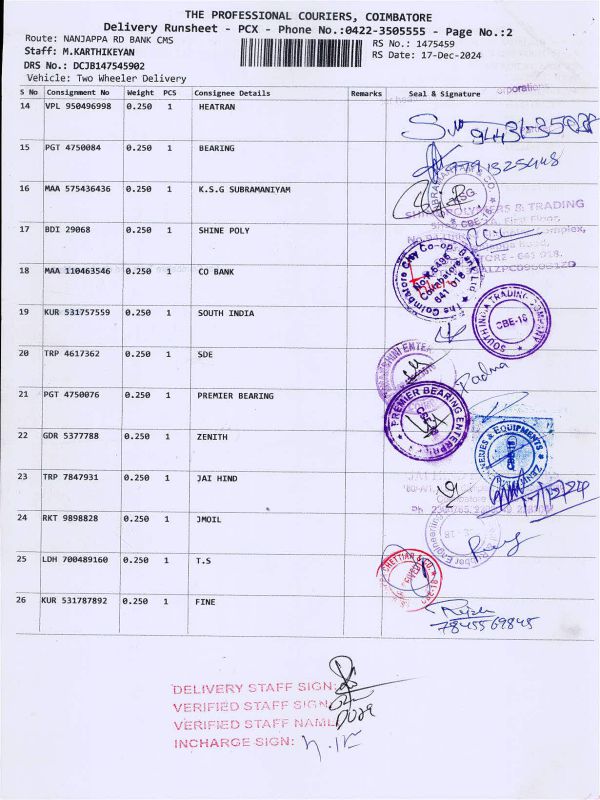 THE PROFESSIONAL COURIERS, COIMBATORE
Delivery Runsheet - PCX - Phone No.:0422-3505555 - Page No.:2
Route: NANJAPPA RD BANK CMS
RS No.: 1475459
Staff: M.KARTHIKEYAN
RS Date: 17-Dec-2024
DRS No.: DCJB147545902
Vehicle: Two Wheeler Delivery
S No Consignment No Weight PCS Consignee Details Remarks Seal & Signature
14 VPL 950496998 0.250 1 HEATRAN
15 PGT 4750084 0.250 1 BEARING
16 MAA 575436436 0.250 1 K.S.G SUBRAMANIYAM
17 BDI 29068 0.250 1 SHINE POLY
18 MAA 110463546 0.250 1 CO BANK
The Coimbatore City Co-op. Bank Ltd
Coimbatore
641 018
19 KUR 531757559 0.250 1 SOUTH INDIA
SOUTH INDIA TRADING COMPANY
CBE-18
20 TRP 4617362 0.250 1 SDE
Padma
21 PGT 4750076 0.250 1 PREMIER BEARING
PREMIER BEARING ENTERPRISES
22 GDR 5377788 0.250 1 ZENITH
23 TRP 7847931 0.250 1 JAI HIND
24 RKT 9898828 0.250 1 JMOIL
25 LDH 700489160 0.250 1 T.S
26 KUR 531787892 0.250 1 FINE
7845569845
DELIVERY STAFF SIGN:
VERIFIED STAFF SIGN:
VERIFIED STAFF NAME:
INCHARGE SIGN: